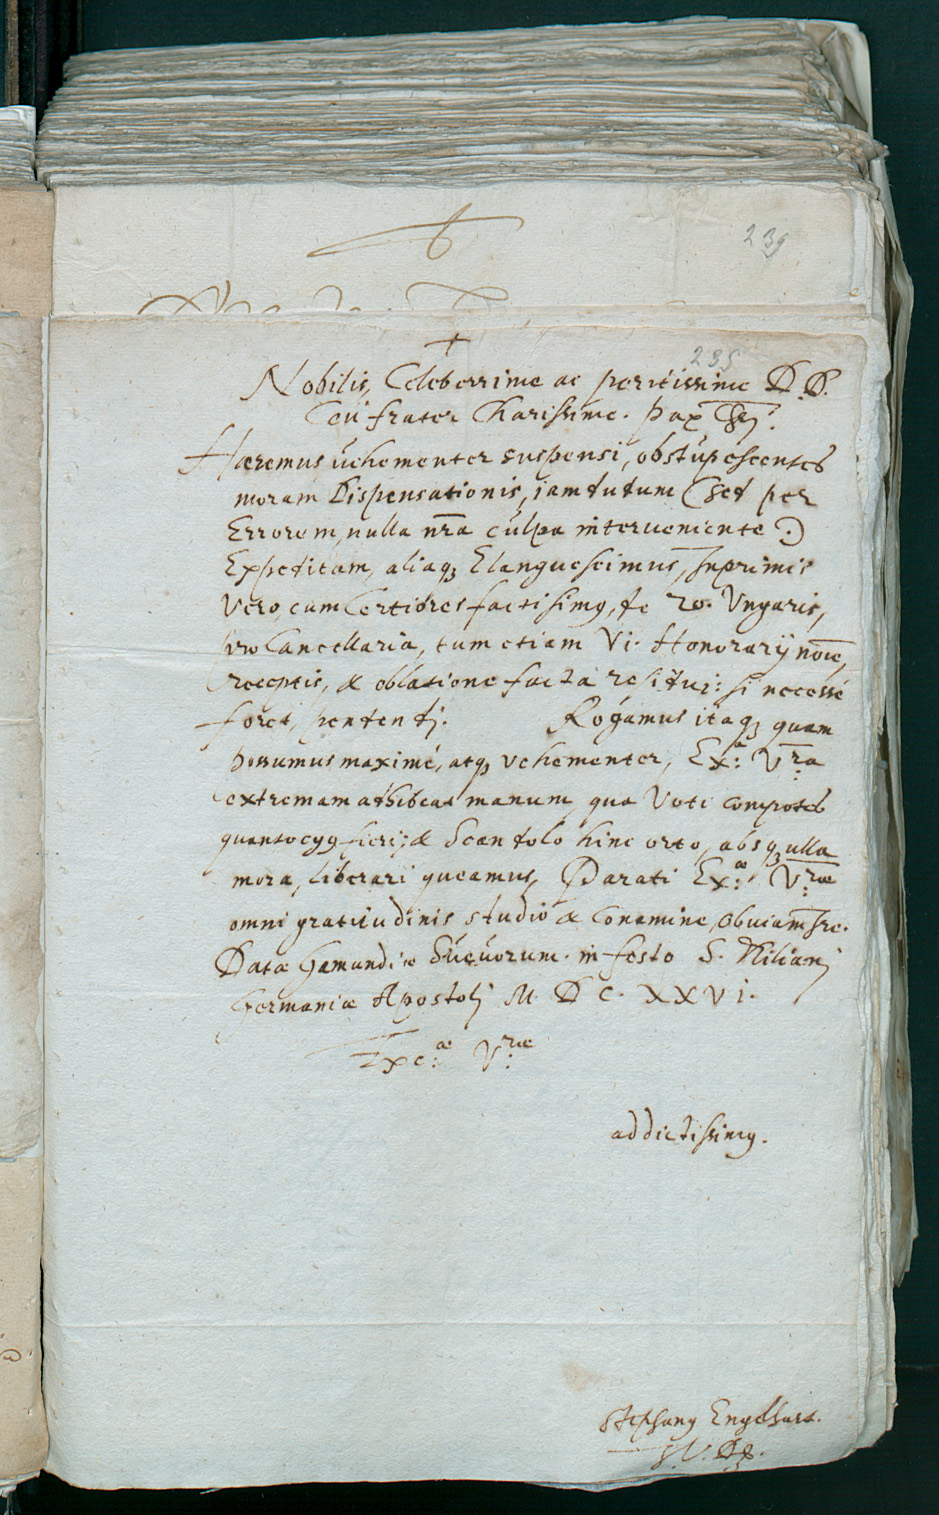 239
+
235
Nobilis, Celeberrime ac peritissime D.D.
ceu frater Charissime. pax
Hæremus vehementer suspensi, obstupescentes
moram Dispensationis, jamdudum (sed per
Errorem, nulla nr̄a culpa interveniente.)
Expeditam, aliaq; Elanguescimus, Inprimis
Vero, cum Certiores facti simꝰ, de 20. Ungaris,
pro Cancellaria, tum etiam Vi. Honorarij noīe,
receptis, & oblatione facta restitui: si necesse
foret, pendendj. Rogamus itaq; quam
possumus maximè, atq; vehementer, Exª: Vrª
extremam adhibeat manum, qua Voti compotes
quantocyꝰ fieri; & Scandalo hinc orto, absq; ulla
mora, liberari queamus, Parati Exæ: Vræ
omni gratitudinis studio & Conamine, obviam ire.
Data Gamundiæ Suevorum. in festo S. Kilianj
Germaniæ Apostolj M. D C. XXVI.
Excæ: Vræ
addictissimꝰ.
Stephanꝰ Engelhart.